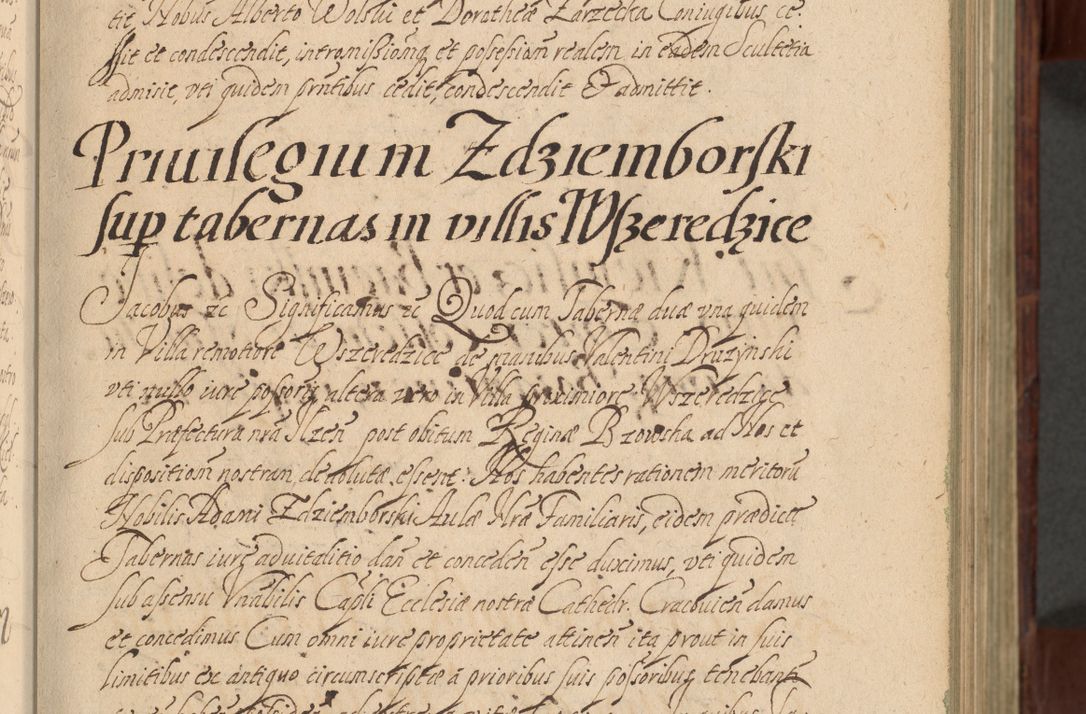 tit, Nobus Alberto Wolski et Dorothea Zarzecka Coniugibus ce¬
ssit et condescendit, intromissionq et possesiom realem in eadem Scultetia
admisit, vti quidem pntibus cedit, condescendit et admittit.
Priuilegium Zdziemborski
sup tabernas in villis Wszeredzice
Jacobus ec Significamus ec Quod cum Tabernæ duæ vna quidem
in Villa remotiore Wszeredzice de manibus Valentini Druzynski
vti nullo iure possoris altera vero in Villa proximiore Wszeredzice
sub Præfectura nra Ilzen post obitum Reginæ Bzowska ad Nos et
dispositiom nostram deuolutæ essent: Nos habentes rationem meritoru
Nobilis Adami Zdziemborski Aulæ Nræ Familiaris, eidem prædict
Tabernas iure aduitalitio dan et conceden esse duximus, vti quidem
sub assensu Vnabilis Capli Ecclesiæ nostræ Cathedr. Cracouien damus
et concedimus Cum omni iure proprietate attinen ita prout in suis
limitibus ex antiquo circumscriptæ a prioribus suis possoribus tenebant